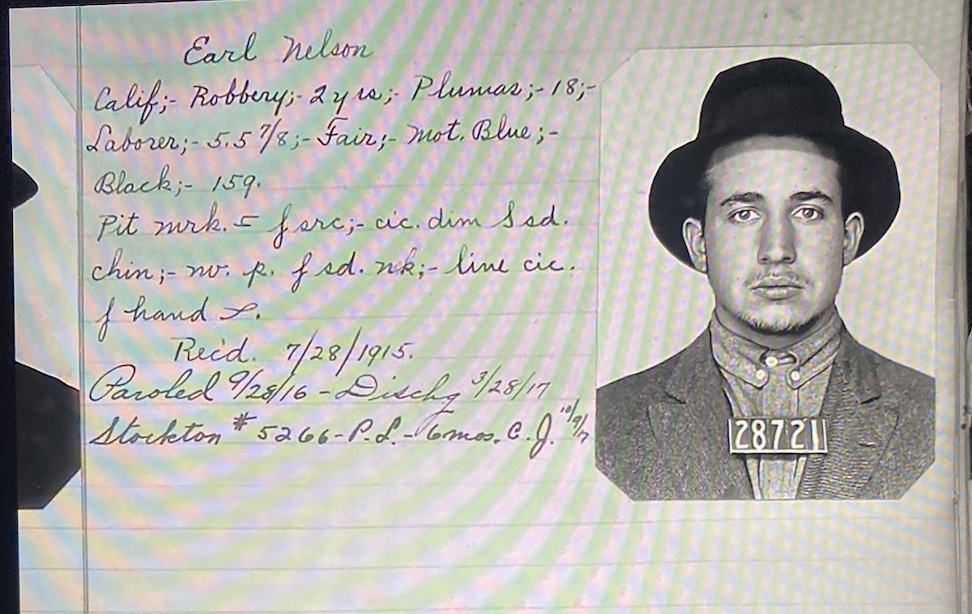 Earl Nelson
Calif;- Robbery;- 2 yrs;- Plumas;- 18;-
Laborer;- 5.5 7/8;- Fair;- Mot. Blue;-
Black;- 159.
Pit mrk. f src;- cic. dim sd.
chin;- nv. p. f sd. nk;- line cic.
f hand
Rec'd. 7/28/1915.
Paroled 9/28/16 - Dischg 3/28/17
Stockton # 5266 - P.L. - 6 mos. C.J.
28721